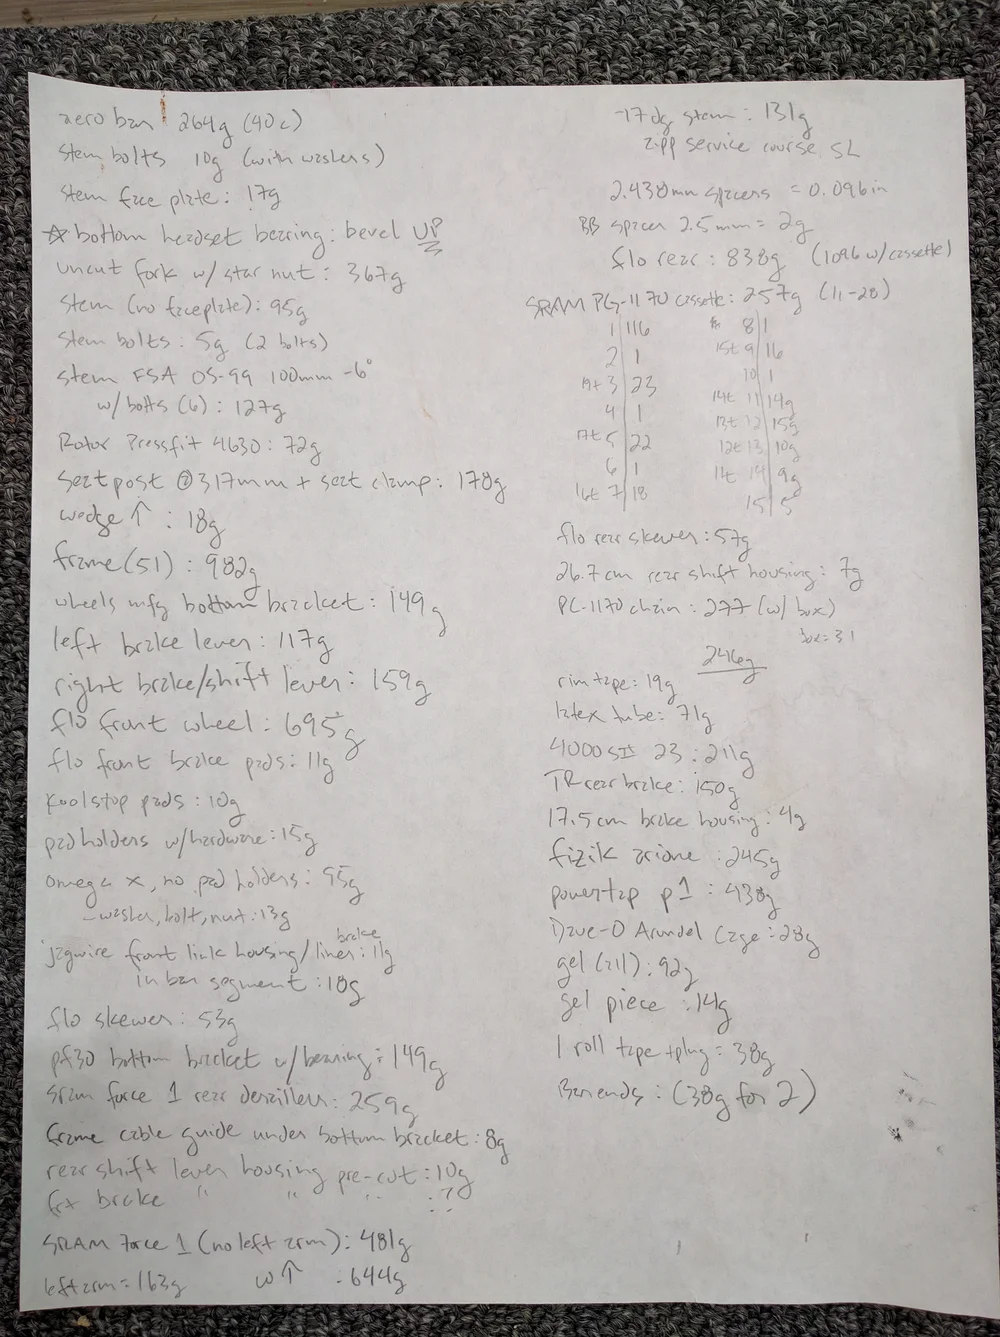 aero bar 264g (40c)
stem bolts 10g (with washers)
stem face plate: 17g
☆ bottom headset bearing: bevel UP
uncut fork w/ star nut: 367g
stem (no faceplate): 95g
stem bolts: 5g (2 bolts)
stem FSA OS-99 100mm -6°
w/ bolts (6): 127g
Rotor Pressfit 4630: 72g
seatpost @ 317mm + seat clamp: 178g
wedge ↑ : 18g
frame (51): 982g
wheels mfg bottom bracket: 149g
left brake lever: 117g
right brake/shift lever: 159g
flo front wheel: 695g
flo front brake pads: 11g
Koolstop pads: 10g
pad holders w/hardware: 15g
omega x, no pad holders: 95g
- washer, bolt, nut: 13g
jagwire front link housing/liner: 11g
brake
in bar segment: 18g
flo skewer: 53g
pf30 bottom bracket w/bearing: 149g
sram force 1 rear derailleur: 259g
frame cable guide under bottom bracket: 8g
rear shift lever housing pre-cut: 10g
frt brake " " " : ?
SRAM Force 1 (no left arm): 481g
left arm = 163g w ↑ : 644g
-17 dg stem: 131g
zipp service course SL
2.438mm spacers = 0.096in
BB spacer 2.5mm = 2g
flo rear: 838g (1096 w/cassette)
SRAM PG-1170 cassette: 257g (11-28)
1 | 116
2 | 1
19t 3 | 23
4 | 1
17t 5 | 22
6 | 1
16t 7 | 18
8 | 1
15t 9 | 16
10 | 1
14t 11 | 14g
13t 12 | 15g
12t 13 | 10g
11t 14 | 9g
15 | 5
flo rear skewer: 57g
26.7cm rear shift housing: 7g
PC-1170 chain: 277 (w/ box)
box = 31
246g
rim tape: 19g
latex tube: 71g
4000sII 23: 211g
TR rear brake: 150g
17.5cm brake housing: 4g
fizik arione: 245g
powertap p1: 438g
Dave-O Arundel Cage: 28g
gel (all): 92g
gel piece: 14g
1 roll tape + plug = 38g
Bar ends: (38g for 2)